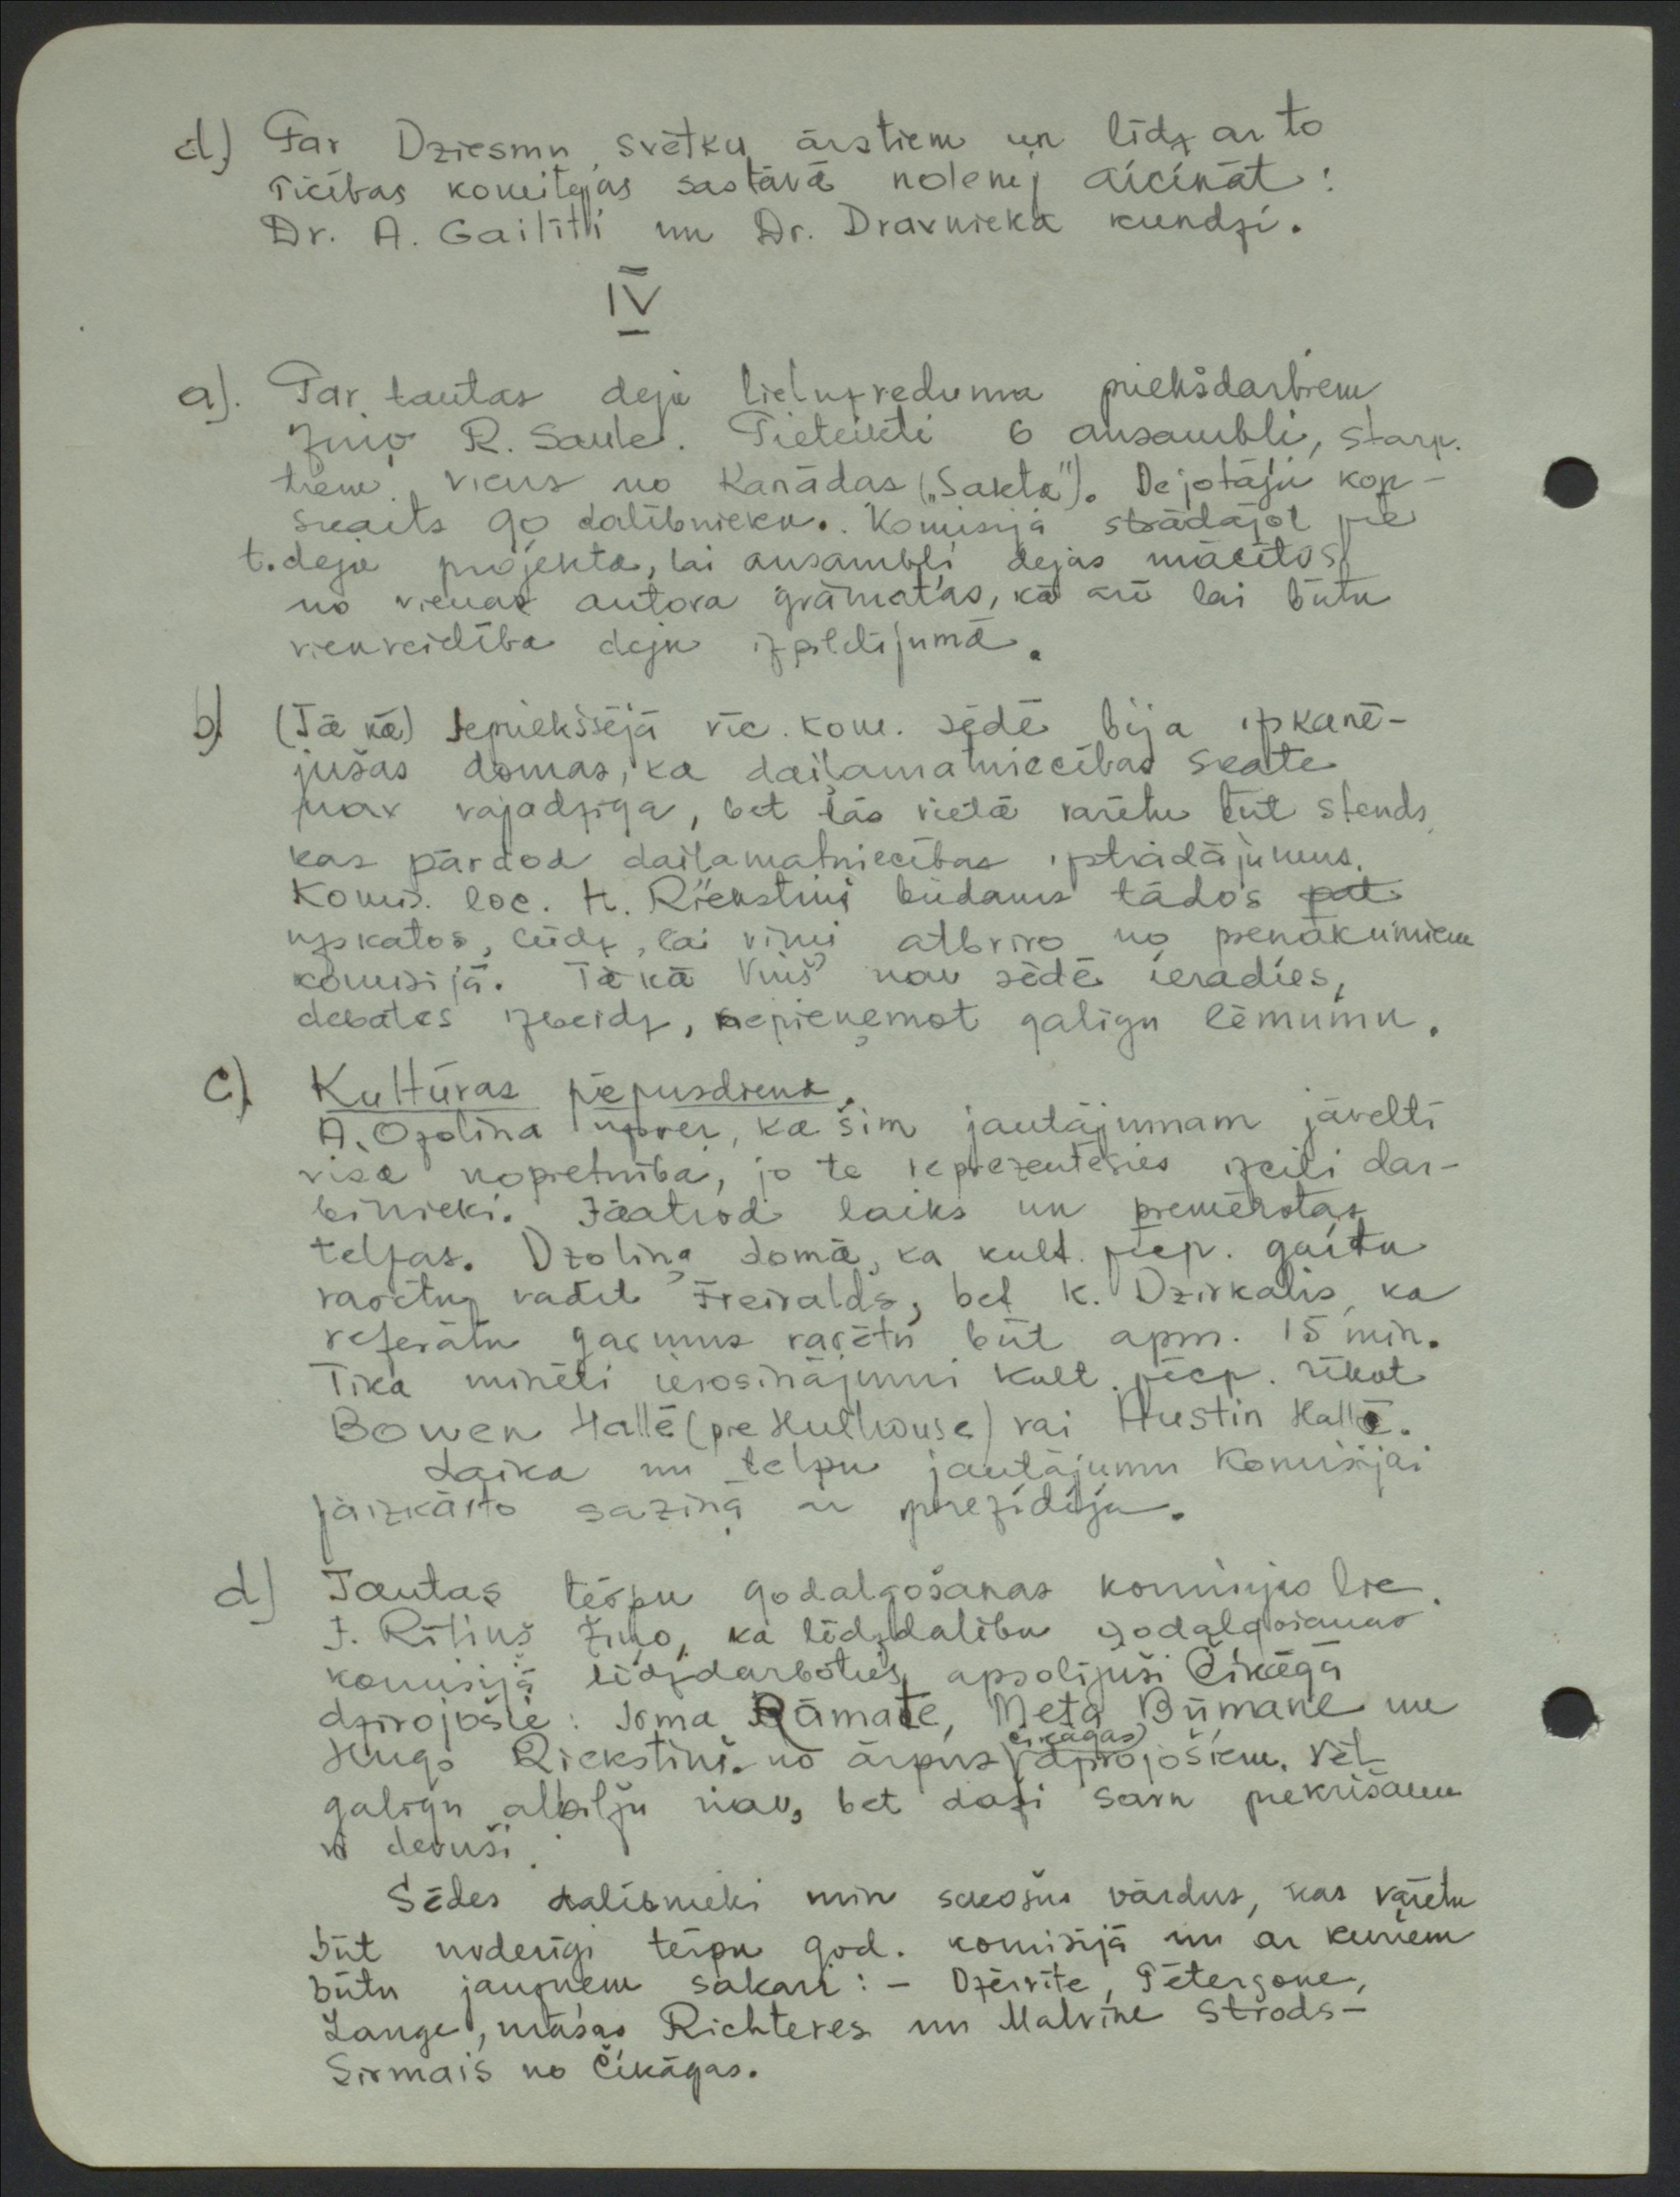 d) Par Dziesmu svētku ārstiem un līdz ar to
Rīcības komitejas sastāvā nolemj aicināt:
Dr. A. Gailīti un Dr. Dravnieka kundzi.
IV
a). Par tautas deju lieluzveduma priekšdarbiem
ziņo R. Saule. Pieteikti 6 ansambļi, starp.
tiem viens no Kanādas („Sakta"). Dejotāju kop-
skaits 90 dalībnieku. Komisija strādājot pie
t. deju projekta, lai ansambļi dejas mācītos
no vienas autora grāmatas, kā arī lai būtu
vienveidība deju izpildījumā.
b) (Tā kā) Iepriekšējā rīc. kom. sēdē bija izkanē-
jušas domas, ka daiļamatniecības skate
nav vajadzīga, bet tās vietā varētu būt stends,
kas pārdod daiļamatniecības izstrādājumus.
Komis. loc. H. Riekstiņš būdams tādos pat
uzskatos, lūdz, lai viņu atbrīvo no pienākumiem
komisijā. Tā kā Viņš nav sēdē ieradies,
debates izbeidz, nepieņemot galīgu lēmumu.
c) Kultūras pēpusdiena.
A. Ozoliņa uzsver, ka šim jautājumam jāveltī
visa nopietnība, jo te reprezentēsies izcili dar-
binieki. Jāatrod laiks un piemērotas
telpas. Ozoliņa domā, ka kult. pēcp. gaitu
varētu vadīt Freivalds, bet K. Dzirkalis, ka
referātu garums varētu būt apm. 15 min.
Tika minēti ierosinājumi kult. pēcp. rīkot
Bowen Hallē (pie Hullhouse) vai Austin Hallē.
Laika un telpu jautājumu Komisijai
jāizkārto saziņā ar prezidiju.
d) Tautas tērpu godalgošanas komisijas loc.
J. Rītiņš ziņo, ka līdzdalību godalgošanas
komisijā līdzdarboties apsolījuši Čikāgā
dzīvojošie: Irma Rāmate, Meta Būmane un
Hugo Riekstiņš. no ārpus Čikāgas dzīvojošiem. vēl
galīgu atbilžu nav, bet daži savu piekrišanu
ir devuši.
Sēdes dalībnieki min sekošus vārdus, kas varētu
būt noderīgi tērpu god. komisijā un ar kuriem
būtu jauzņem sakari: - Dzērvīte, Pētersone,
Lange, māsas Richteres un Malvīne Strods-
Sirmais no Čikāgas.